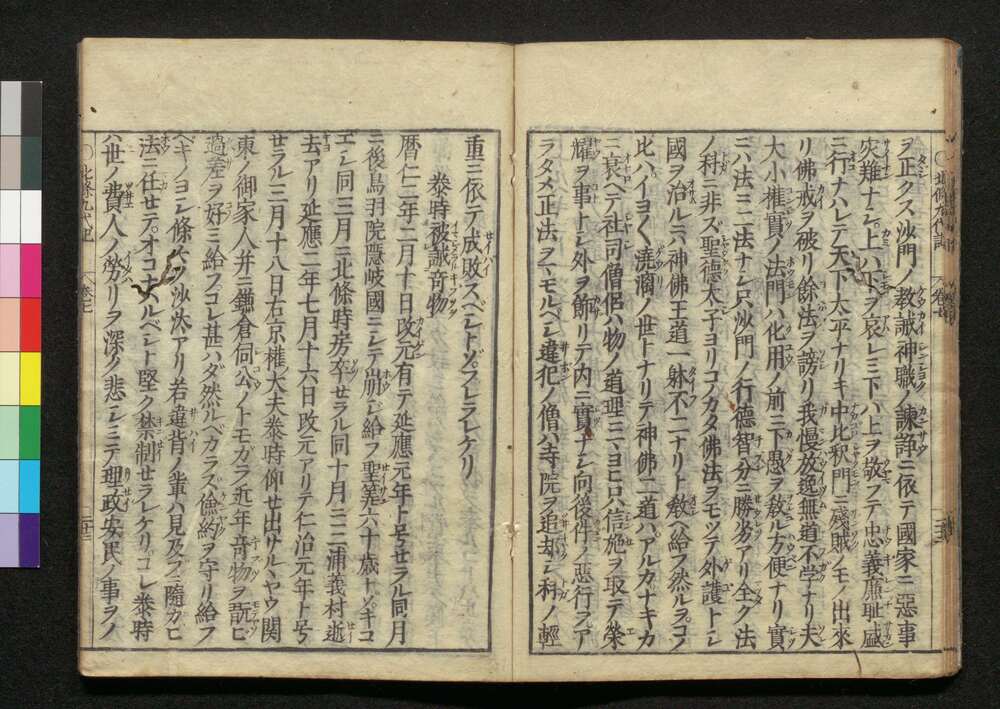 ヲ正クス沙門ノ教誡神職ノ諫諍ニ依テ國家ニ惡事
災難ナシ上ハ下ヲ哀レミ下ハ上ヲ敬フテ忠義廉耻盛
ニ行ナハレテ天下太平ナリキ中比釈門ニ残賊ノモノ出來
リ佛戒ヲ破リ餘法ヲ謗リ我慢放逸無道不学ナリ夫
大小權實ノ法門ハ化用ノ前ニ下愚ヲ教ル方便ナリ實
ニハ法ニ二法ナシ只沙門ノ行德智分ニ勝劣アリ全ク法
ノ科ニ非ズ聖德太子ヨリコノカタ佛法ヲモツテ外護トシ
國ヲ治ルニ神佛王道一躰不二ナリト教ヘ給フ然ルヲコノ
比ハイヨ〱澆漓ノ世トナリテ神佛二道ハアルカナキカ
ニ衰ヘテ社司僧侶ハ物ノ道理ニ、ヨヒロハ信施ヲ取テ榮
耀ヲ事トシ外ヲ飾リテ内ニ實ナシ向後件ノ惡行ヲア
ラタメ正法ヲマモルベシ違犯ノ僧ハ寺院ヲ追却シ科ノ輕
重ニ依テ成敗スベシトゾフレラレケリ
泰時被誡奇物
暦仁二年二月十日改元有テ延應元年ト号セラル同月
ニ後鳥羽院隱岐國ニシテ崩ジ給フ聖筭六十歳トゾキコ
エシ同三月ニ北條時房卒セラル同十月ニ三浦義村逝
去アリ延應二年七月十六日改元アリテ仁治元年ト号
セラル三月十八日右京權大夫泰時仰セ出サルヽヤウ関
東ノ御家人并ニ鎌倉伺公ノトモガラ近年奇物ヲ翫ヒ
過差ヲ好ミ給フコレ甚ハダ然ルベカラズ儉約ヲ守リ給フ
ベキノヨシ條々ノ沙汰アリ若違背ノ輩ハ見及フニ隨カヒ
法ニ任せテオコナハルベシト堅ク禁制せラレケリコレ泰時
ハ世ノ費人ノ勞リヲ深ク悲シミテ理政安民ノ事ヲノ